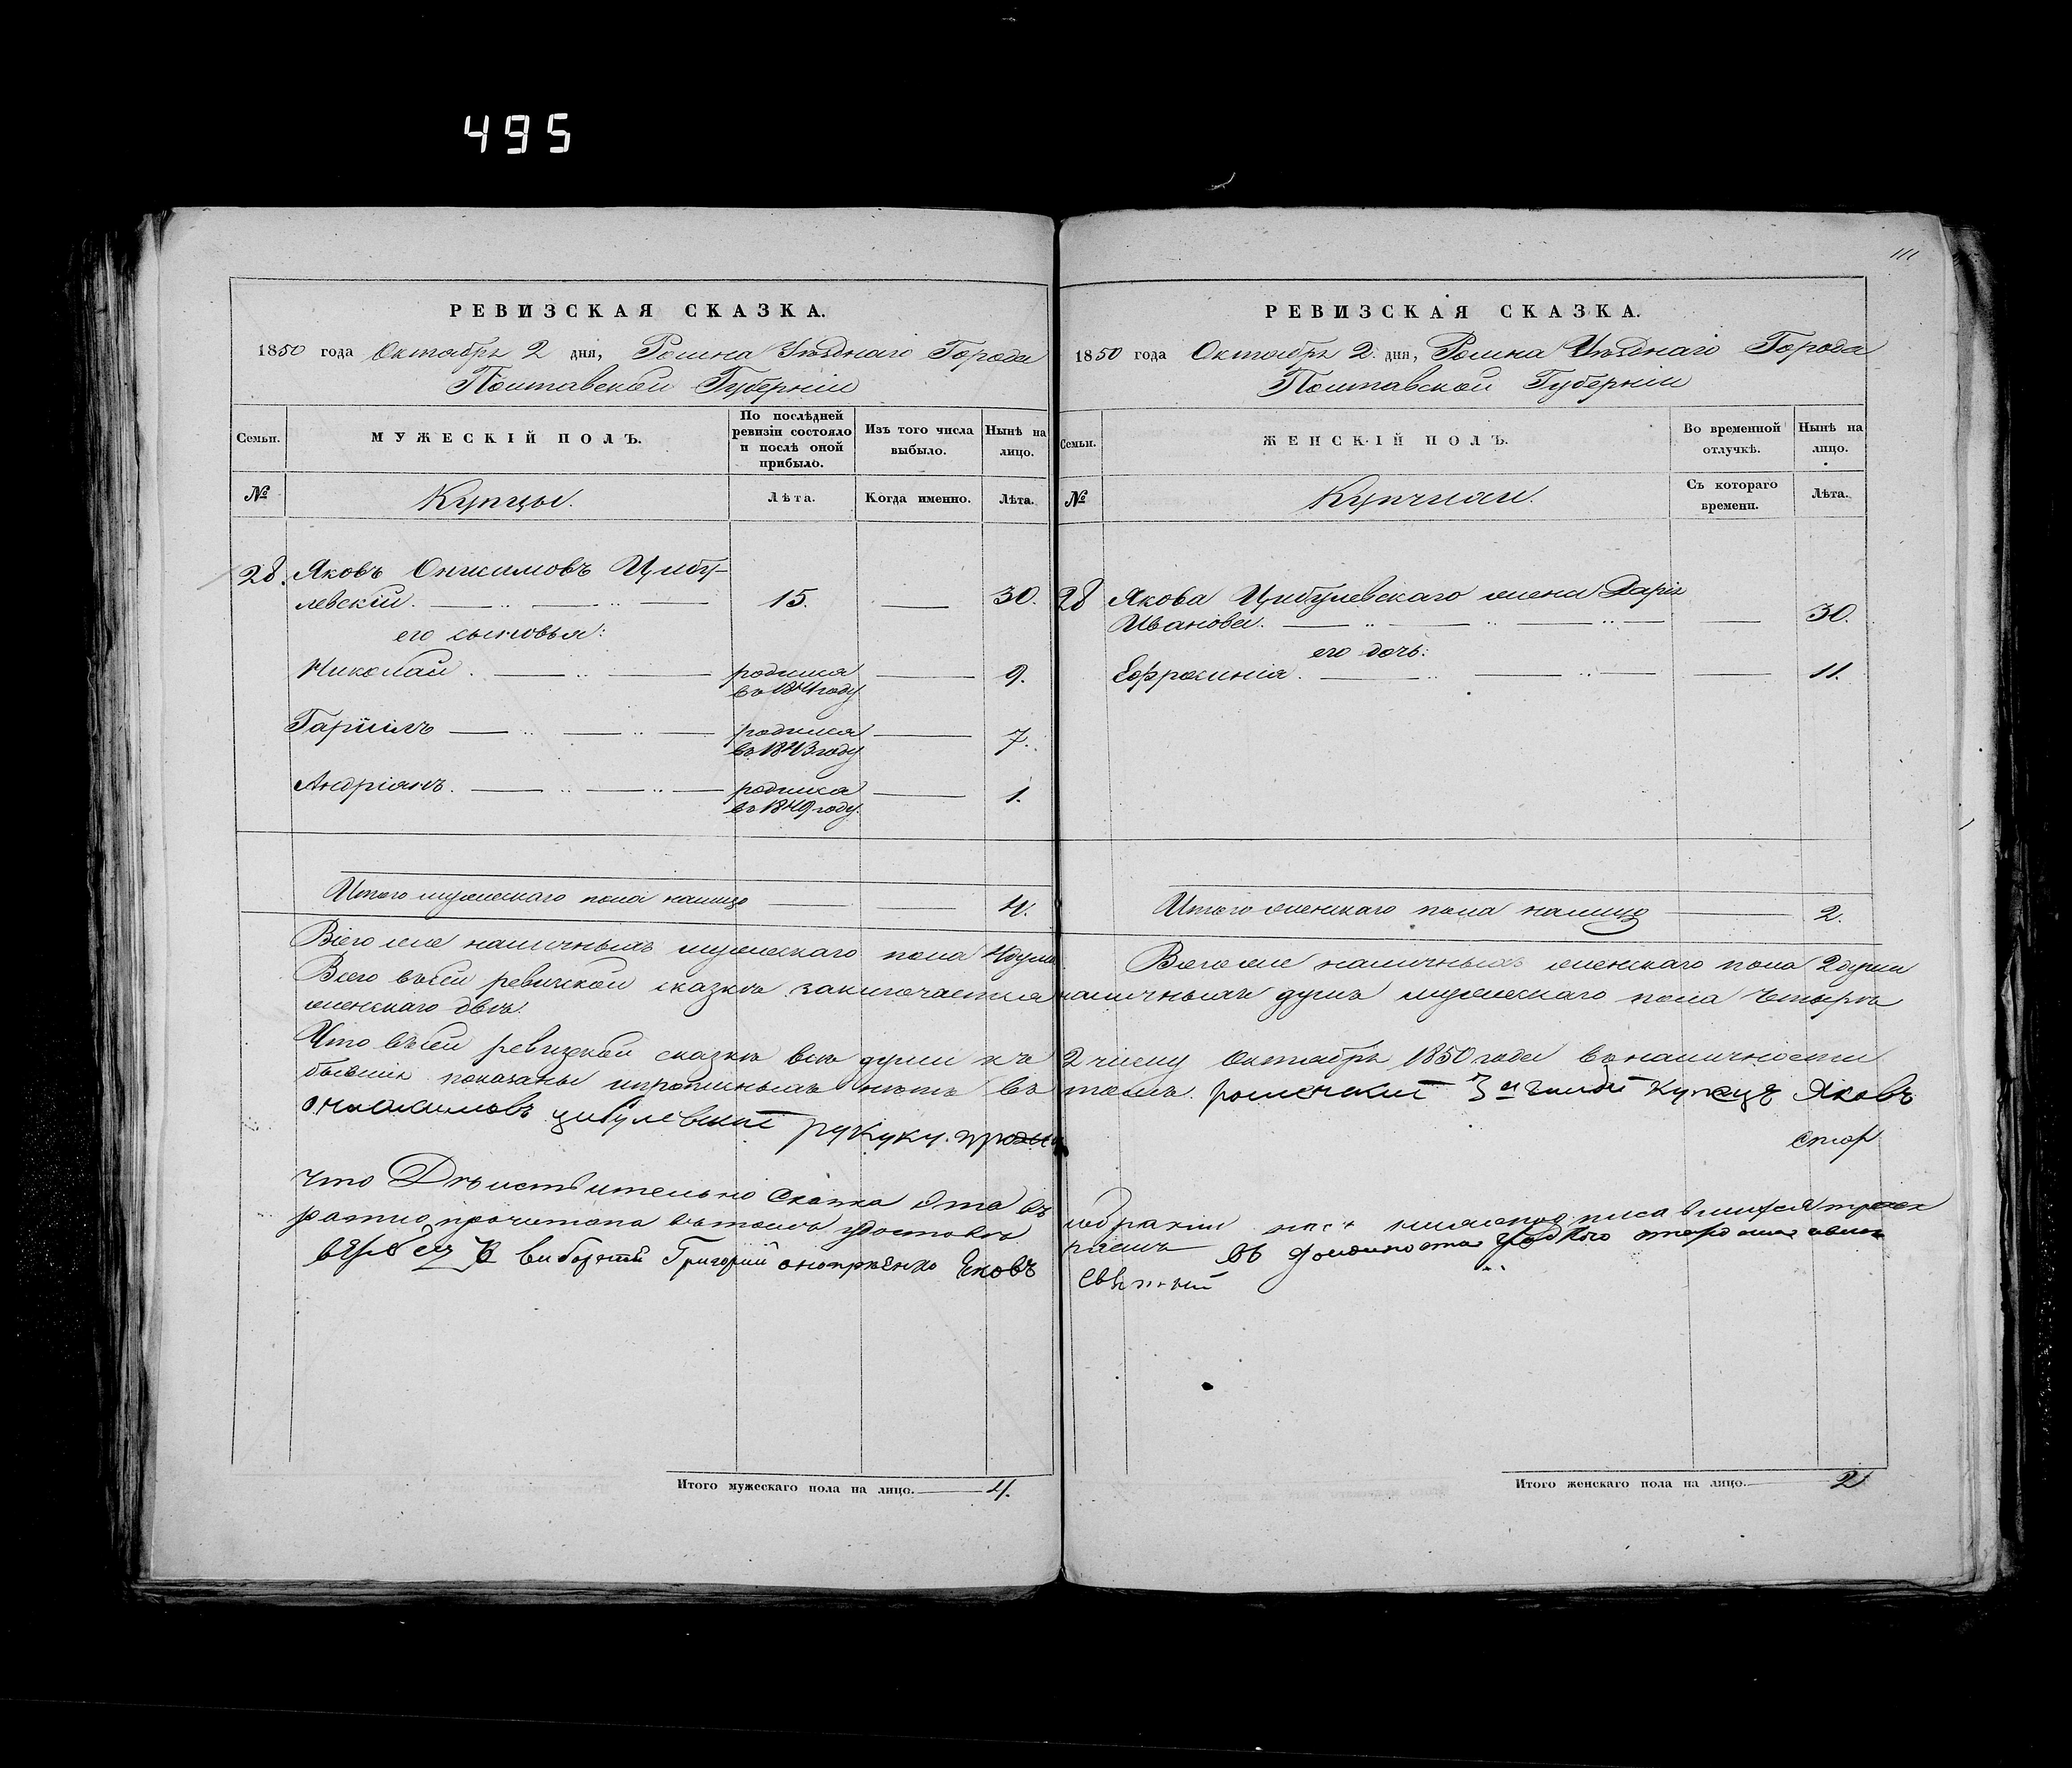 495
111
РЕВИЗСКАЯ СКАЗКА.
1850 года Октября 2 дня, Ромна Уѣзднаго Города
Полтавской Губерніи
Семьи.
МУЖЕСКІЙ ПОЛЪ.
По послѣдней ревизіи состояло и послѣ оной прибыло.
Изъ того числа выбыло.
Нынѣ на лицо.
№
Купцы.
Лѣта.
Когда именно.
Лѣта.
28. Яковъ Онисимовъ Цибу-
левскій. 15. 30.
его сыновья:
Николай. родился 9.
въ 1841 году
Гаріилъ родился 7.
въ 1843 году
Андріянъ. родился 1.
въ 1849 году.
Итого мужескаго пола налицо 4.
Всего же наличныхъ мужескаго пола 4 души
Всего въ сей ревизской сказкѣ заключается
женскаго двѣ.
Что въ сей ревизской сказкѣ всѣ души къ
бывшія показаны и прописныхъ нѣтъ въ
цибулевскій руку
что Дѣиствительно Сказка Эта
прочитана въ томъ
выборный Григорій Яковъ
Итого мужескаго пола на лицо. 4.
РЕВИЗСКАЯ СКАЗКА.
1850 года Октября 2. дня, Ромна Уѣзднаго Города
Полтавской Губерніи
Семьи.
ЖЕНСКІЙ ПОЛЪ.
Во временной отлучкѣ.
Нынѣ на лицо.
№
Купчихи.
Съ котораго времени.
Лѣта.
28 Якова Цибулевскаго жена Дарія
Иванова. 30.
его дочь:
Ефросинія. 11.
Итого женскаго пола налицо 2.
Всего же наличныхъ женскаго пола 2 души
наличныхъ душъ мужескаго пола четыре
2 числу Октября 1850 года въ наличности
томъ. роменский 3й гилди купецъ Яковъ
Итого женскаго пола на лицо. 2